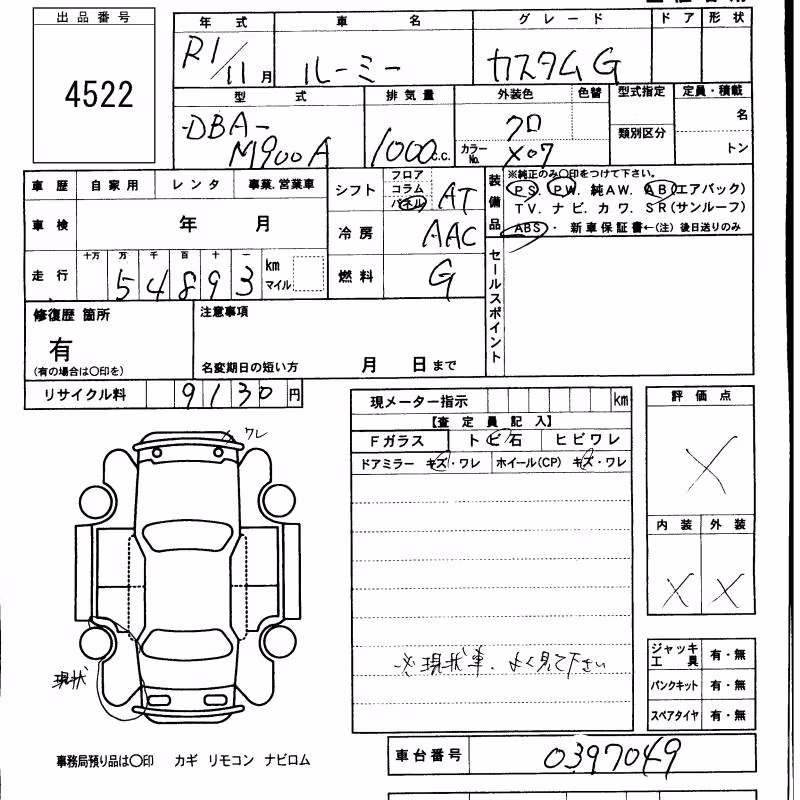 出品番号
4522
年式 車名 グレード ドア 形状
R1/11月 ルーミー カスタムG
型式 排気量 外装色 色替 型式指定 定員・積載
DBA-
M900A 1000c.c. クロ 名
カラーNo. X07 類別区分 トン
車歴 自家用 レンタ 事業.営業車
車検 年 月
走行 十万 万 千 百 十 一
54893 km マイル
シフト フロア コラム パネル AT
冷房 AAC
燃料 G
装備品
※純正のみ〇印をつけて下さい。
PS PW. 純AW. AB(エアバック)
TV. ナビ. カワ. SR(サンルーフ)
ABS・ 新車保証書←(注)後日送りのみ
セールスポイント
修復歴 箇所
有
(有の場合は〇印を)
注意事項
名変期日の短い方 月 日まで
リサイクル料 9130円
現メーター指示 km
【査定員記入】
Fガラス トビ石 ヒビワレ
ドアミラー キズ・ワレ ホイール(CP) キズ・ワレ
※現状車、よく見て下さい
評価点
X
内装 外装
X X
ジャッキ工具 有・無
パンクキット 有・無
スペアタイヤ 有・無
ワレ
現状
事務局預り品は〇印 カギ リモコン ナビロム
車台番号 0397049